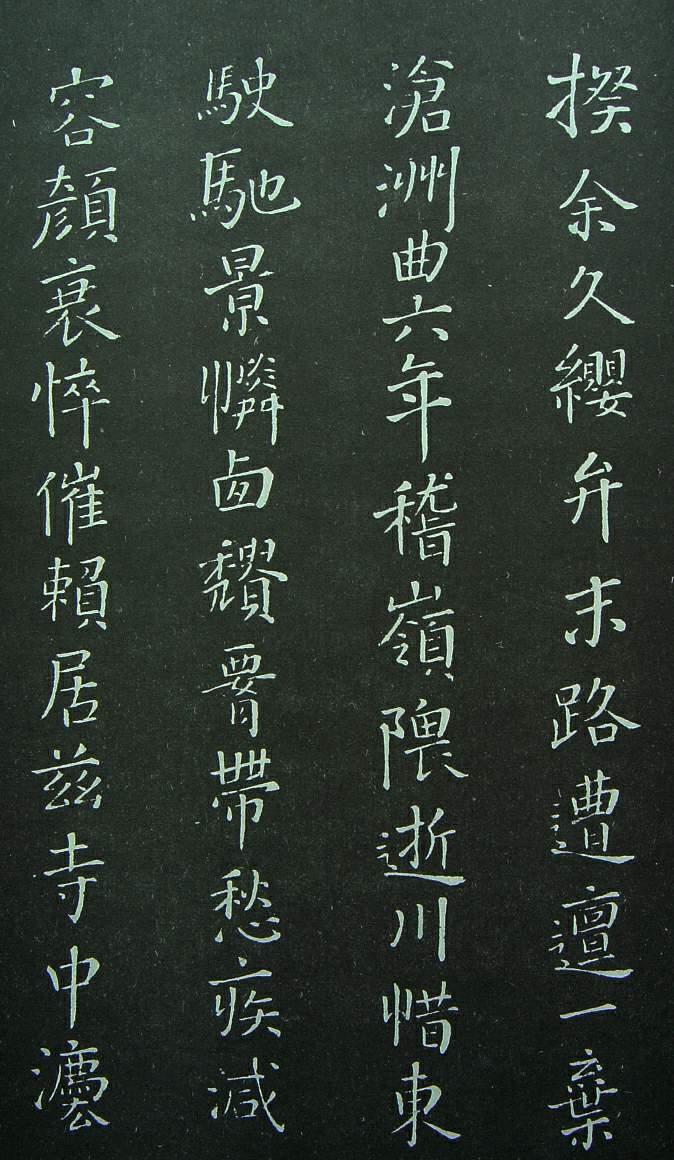 揆余久纓弁末路遭邅一棄
滄洲曲六年稽嶺隈逝川惜東
駛馳景憐卥穨䙅帶愁疾減
容顏衰悴催賴居茲寺中灋